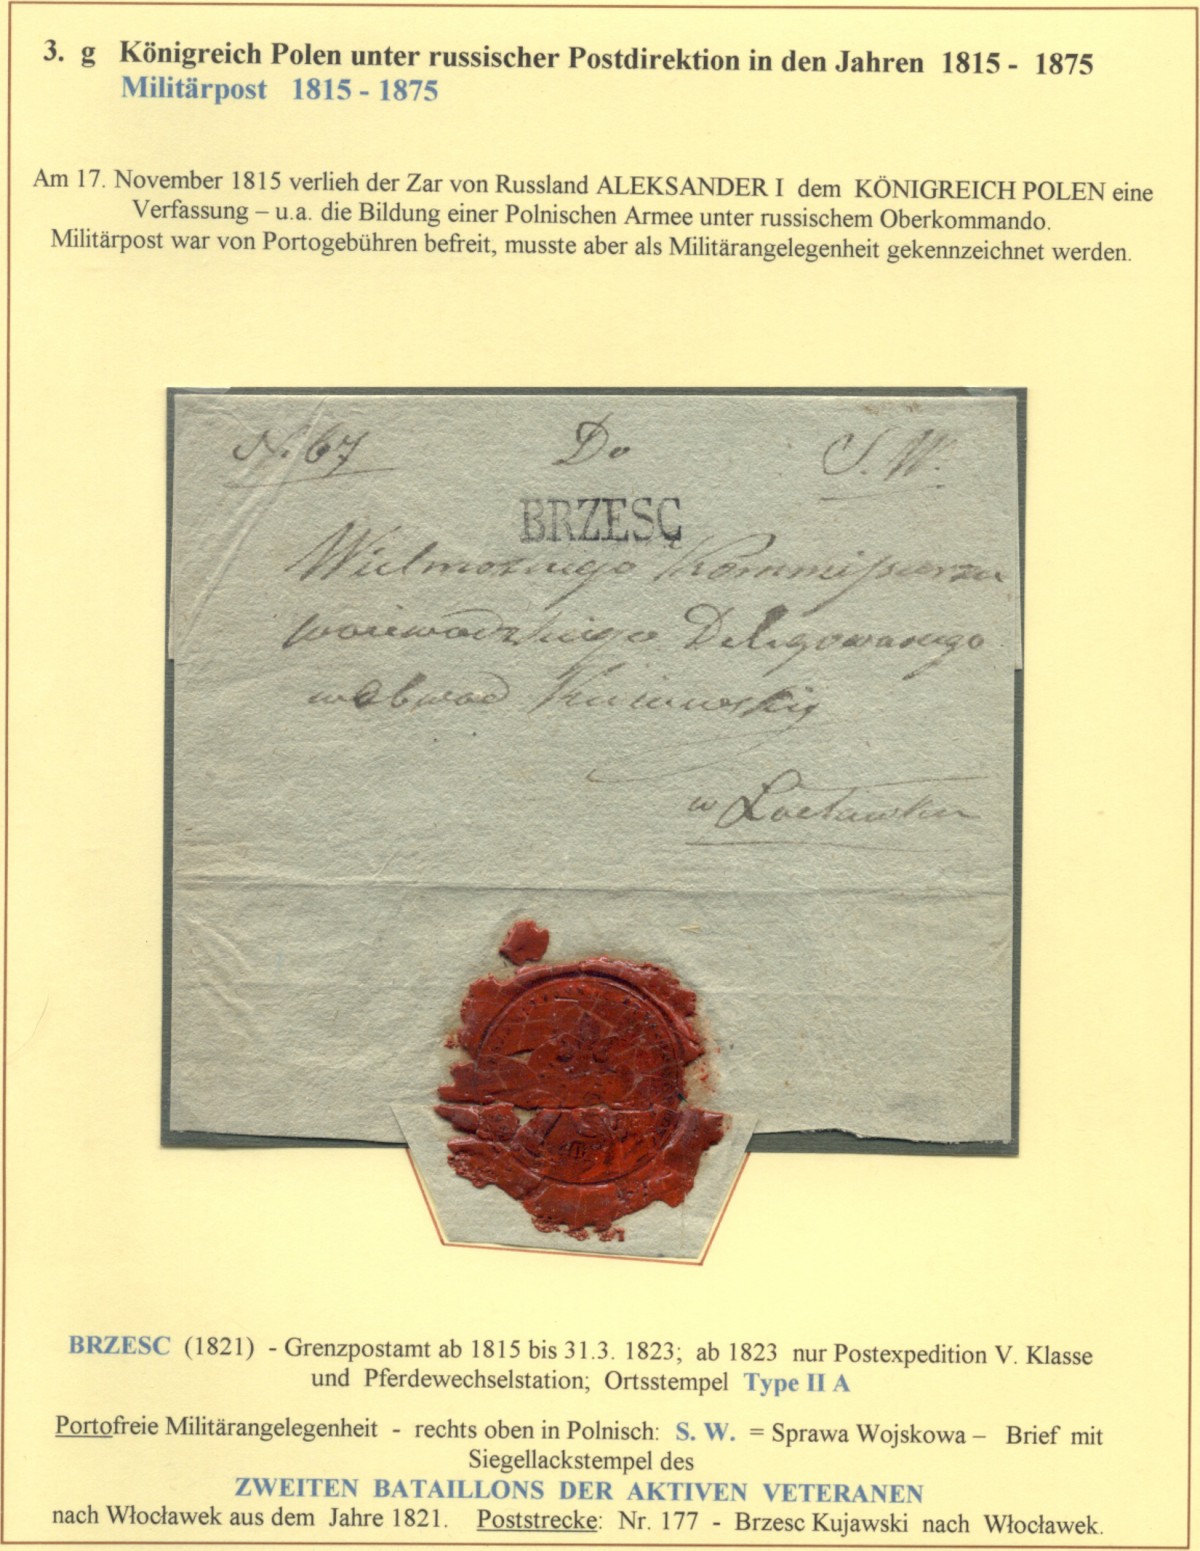 3. g Königreich Polen unter russischer Postdirektion in den Jahren 1815 - 1875
Militärpost 1815 - 1875
Am 17. November 1815 verlieh der Zar von Russland ALEKSANDER I dem KÖNIGREICH POLEN eine
Verfassung – u.a. die Bildung einer Polnischen Armee unter russischem Oberkommando.
Militärpost war von Portogebühren befreit, musste aber als Militärangelegenheit gekennzeichnet werden.
N. 67 Do S. W.
BRZESC
Wielmożnego Kommissarza
woiewodzkiego Delegowanego
w Obwod Kuiawski
w Locławku
BRZESC (1821) - Grenzpostamt ab 1815 bis 31.3. 1823; ab 1823 nur Postexpedition V. Klasse
und Pferdewechselstation; Ortsstempel Type II A
Portofreie Militärangelegenheit - rechts oben in Polnisch: S. W. = Sprawa Wojskowa – Brief mit
Siegellackstempel des
ZWEITEN BATAILLONS DER AKTIVEN VETERANEN
nach Włocławek aus dem Jahre 1821. Poststrecke: Nr. 177 - Brzesc Kujawski nach Włocławek.